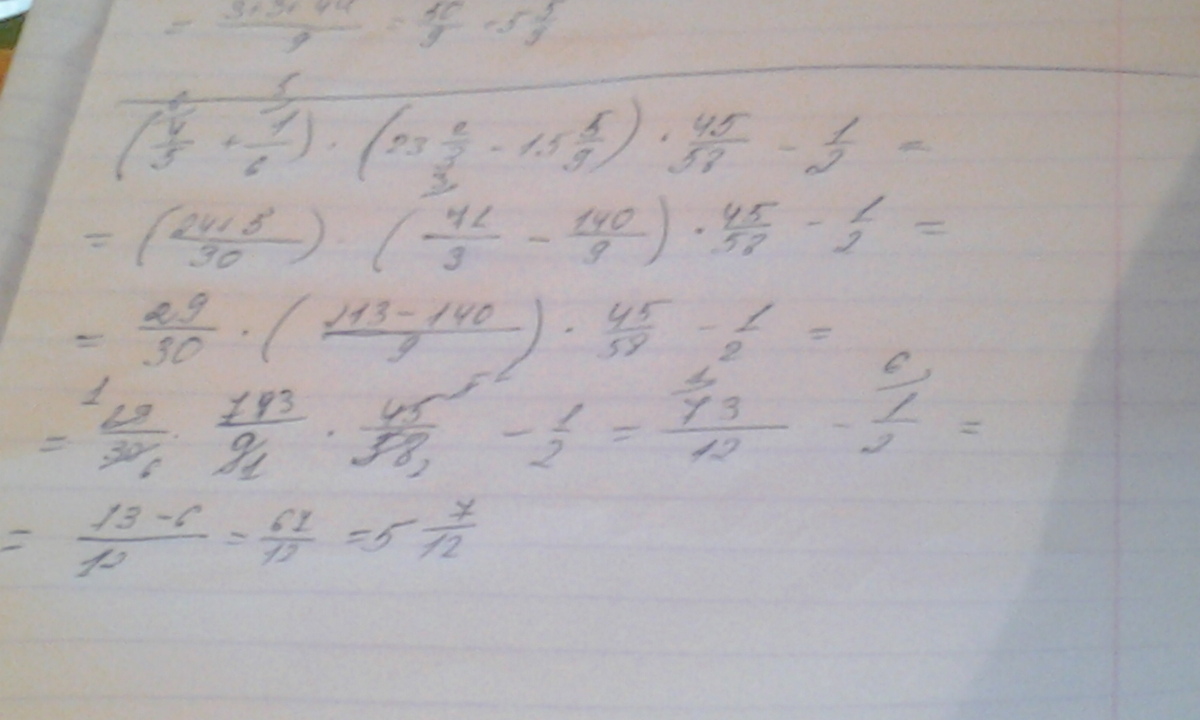 = 3+3+44/9 = 50/9 = 5 5/9
(4/5 + 1/6) · (23 2/3 - 15 5/9) · 45/58 - 1/2 =
= (24+5/30) · (71/3 - 140/9) · 45/58 - 1/2 =
= 29/30 · (213-140/9) · 45/58 - 1/2 =
= 29/30 · 73/9 · 45/58 - 1/2 = 73/12 - 1/2 =
= 73-6/12 = 67/12 = 5 7/12